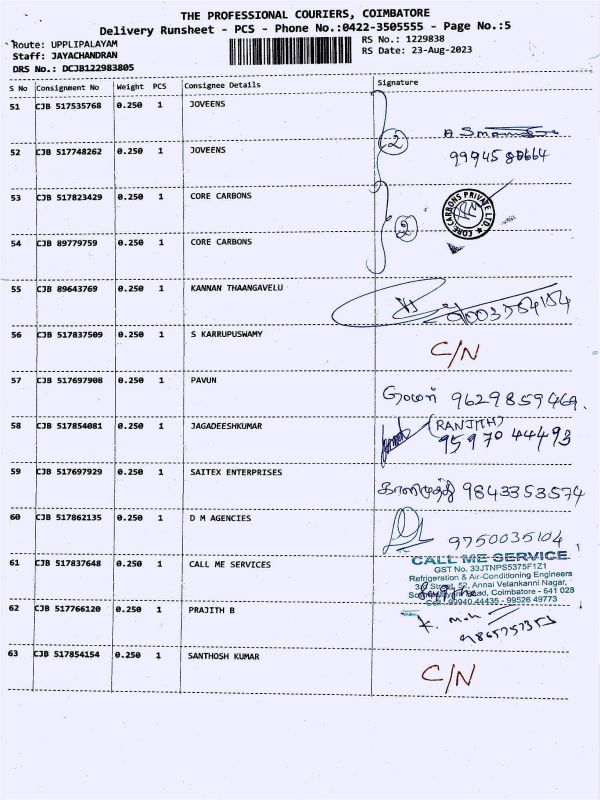 THE PROFESSIONAL COURIERS, COIMBATORE
Delivery Runsheet - PCS - Phone No.:0422-3505555 - Page No.:5
Route: UPPLIPALAYAM
RS No.: 1229838
Staff: JAYACHANDRAN
RS Date: 23-Aug-2023
DRS No.: DCJB122983805
S No Consignment No Weight PCS Consignee Details Signature
51 CJB 517535768 0.250 1 JOVEENS
2
52 CJB 517748262 0.250 1 JOVEENS
53 CJB 517823429 0.250 1 CORE CARBONS
CORE CARBONS PRIVATE LTD
2
54 CJB 89779759 0.250 1 CORE CARBONS
55 CJB 89643769 0.250 1 KANNAN THAANGAVELU
56 CJB 517837509 0.250 1 S KARRUPUSWAMY
C/N
57 CJB 517697908 0.250 1 PAVUN
9629859469.
58 CJB 517854081 0.250 1 JAGADEESHKUMAR
(RANJITH)
95970 44493
59 CJB 517697929 0.250 1 SAITEX ENTERPRISES
காளிமுத்து 9843353574
60 CJB 517862135 0.250 1 D M AGENCIES
9750035104
61 CJB 517837648 0.250 1 CALL ME SERVICES
CALL ME SERVICE
GST No. 33JTNPS5375F1Z1
Refrigeration & Air-Conditioning Engineers
Street, 52, Annai Velankanni Nagar,
Road, Coimbatore - 641 028
Cell: 99940 44435 - 99526 49773
62 CJB 517766120 0.250 1 PRAJITH B
63 CJB 517854154 0.250 1 SANTHOSH KUMAR
C/N